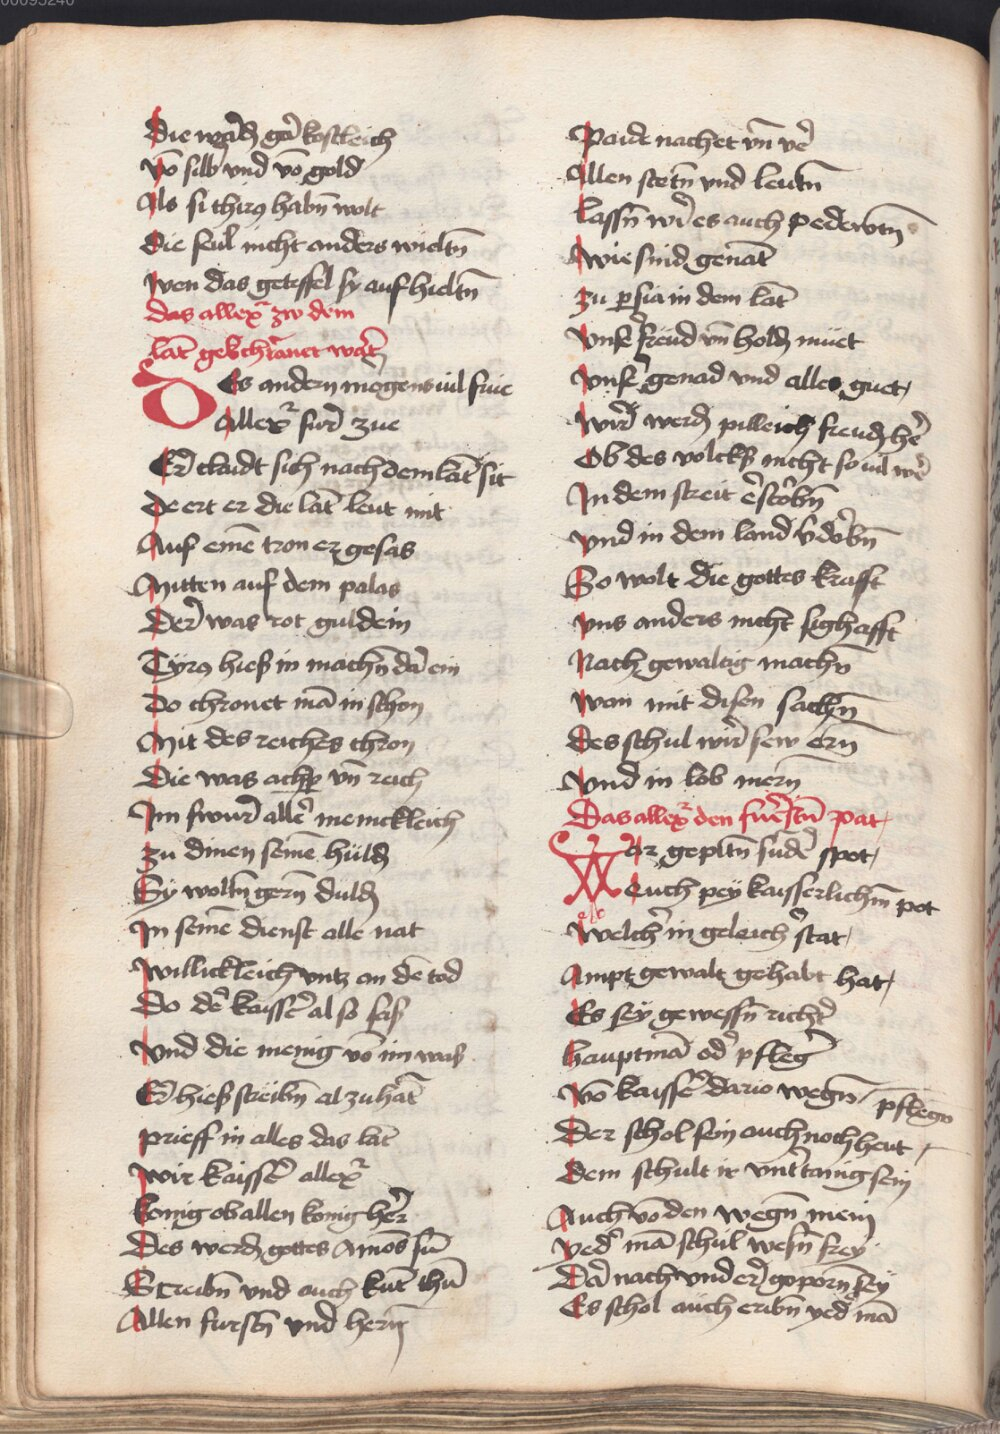 00095240
Die wardn gar kostleich
võ silbr vnd võ gold
Als si thirus habñ wolt
Die seul nicht anders wieltñ
wen das geteffel sy auf hieltñ
das allexr zw dem
lãt gekchrãnet warẽ
Des andern mogens vil frue
Allexr fur zue
Er claidt sich nach dem lãt sit
De ert er die lãt leut mit
Auf eine͂ tron er gesas
Mitten auf dem palas
Der was rot guldein
Tyrus hies in machñ da ein
Do chronet mã in schon
Mit des reiches chron
Die was vñ reich
Im swur aller menickleich
zu dinen seine͂ huldn
Sy woltñ gerñ duldn
In seine͂ dienst alle nat
willickleich vntz an de͂ tod
Do der kaisser al so sas
vnd die menig võ im was
Er hies screibñ al zuhãt
prieff in alles das lãt
wir kaisser allexr
konig ob allen konig her
Des werdn gottes Amos su͂
Screibñ vnd auch kut thu͂
Allen furstñ vnd herñ
Paid nachet vñ ver
Allen stetñ vnd leutñ
lassñ wir es auch pedewtñ
wie sind genãt
zu persia in dem lãt
vnser freud vñ holdn muet
vnser genad vnd alles guet
wird werdn pilleich freudn her
Ob des volcks nicht so vil wer
In dem streit erstorbñ
vnd in dem land vdorbñ
So wolt die gottes krafft
vns anders nicht sighafft
Nach gewaltig machñ
wan mit disen sachñ
Des schul wir sew erñ
vnd in lob merñ
Das allexr den furstñ pat
War gepitñ sunder spot
euch pey kaisserlichem pot
welcher in geleich stat
Ampt gewalt gehabt hat
Es sey gewessñ richter
hauptmã oder pfleger
võ kaisser dario wegñ pflegñ
Der schol sein auch noch heut
dem schult ir vntertanig sein
Auch võ den wegñ mein
yeder mã schul wesñ frey
Dar nach vnd er goporñ sey
Es schol auch eribñ yeder mã